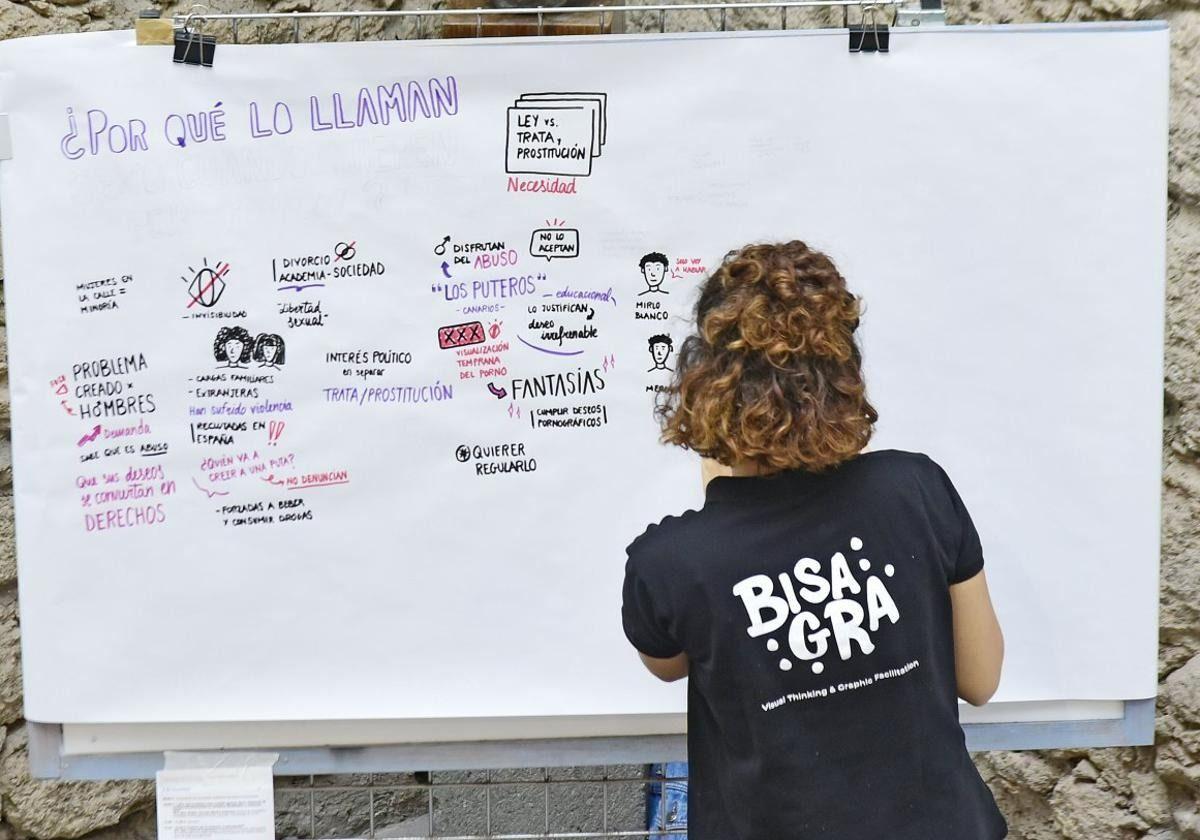 ¿POR QUÉ LO LLAMAN
LEY vs.
TRATA y
PROSTITUCIÓN
Necesidad
MUJERES EN
LA CALLE =
MINORÍA
- INVISIBILIDAD
DIVORCIO
ACADEMIA - SOCIEDAD
"Libertad
sexual"
DISFRUTAN
DEL ABUSO
NO LO
ACEPTAN
"LOS PUTEROS"
- CANARIOS -
educacional
LO JUSTIFICAN
deseo
irrefrenable
XXX
VISUALIZACIÓN
TEMPRANA
DEL PORNO
FANTASÍAS
CUMPLIR DESEOS
PORNOGRÁFICOS
QUIERER
REGULARLO
SOLO VOY
A HABLAR
MIRLO
BLANCO
PROBLEMA
CREADO x
HOMBRES
Demanda
SABE QUE ES ABUSO
Que sus deseos
se conviertan en
DERECHOS
- CARGAS FAMILIARES
- EXTRANJERAS
Han sufrido violencia
RECLUTADAS EN
ESPAÑA !!
¿QUIÉN VA A
CREIR A UNA PUTA?
NO DENUNCIAN
- FORZADAS A BEBER
Y CONSUMIR DROGAS
INTERÉS POLÍTICO
en separar
TRATA/PROSTITUCIÓN
BISAGRA
Visual Thinking & Graphic Facilitation